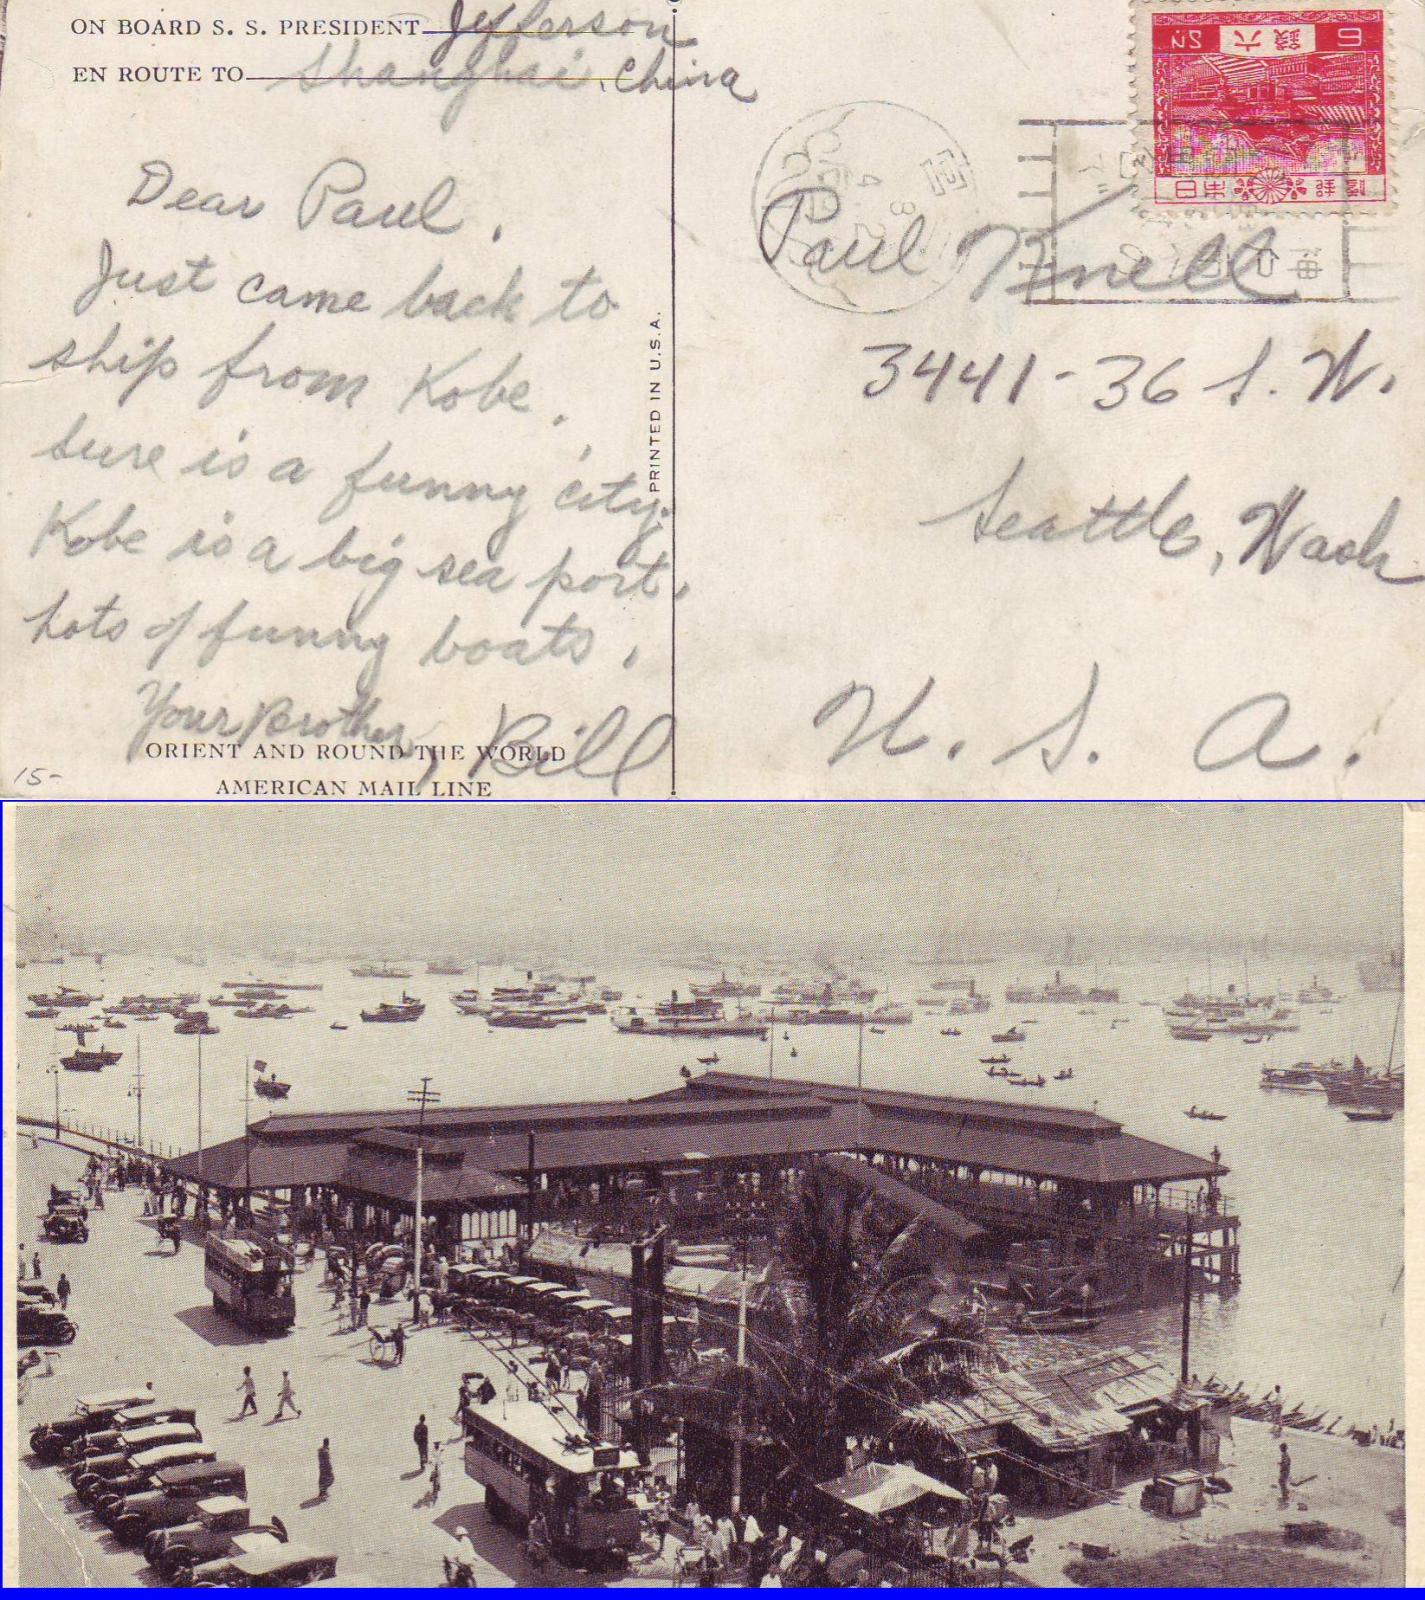 ON BOARD S. S. PRESIDENT Jefferson
EN ROUTE TO Shanghai, China
Dear Paul,
Just came back to
ship from Kobe.
Sure is a funny city.
Kobe is a big sea port,
Lots of funny boats.
Your Brother, Bill
ORIENT AND ROUND THE WORLD
AMERICAN MAIL LINE
15-
PRINTED IN U.S.A.
6 錢六 SN
日本郵便
Paul
3441-36 S. W.
Seattle, Wash
U. S. A.